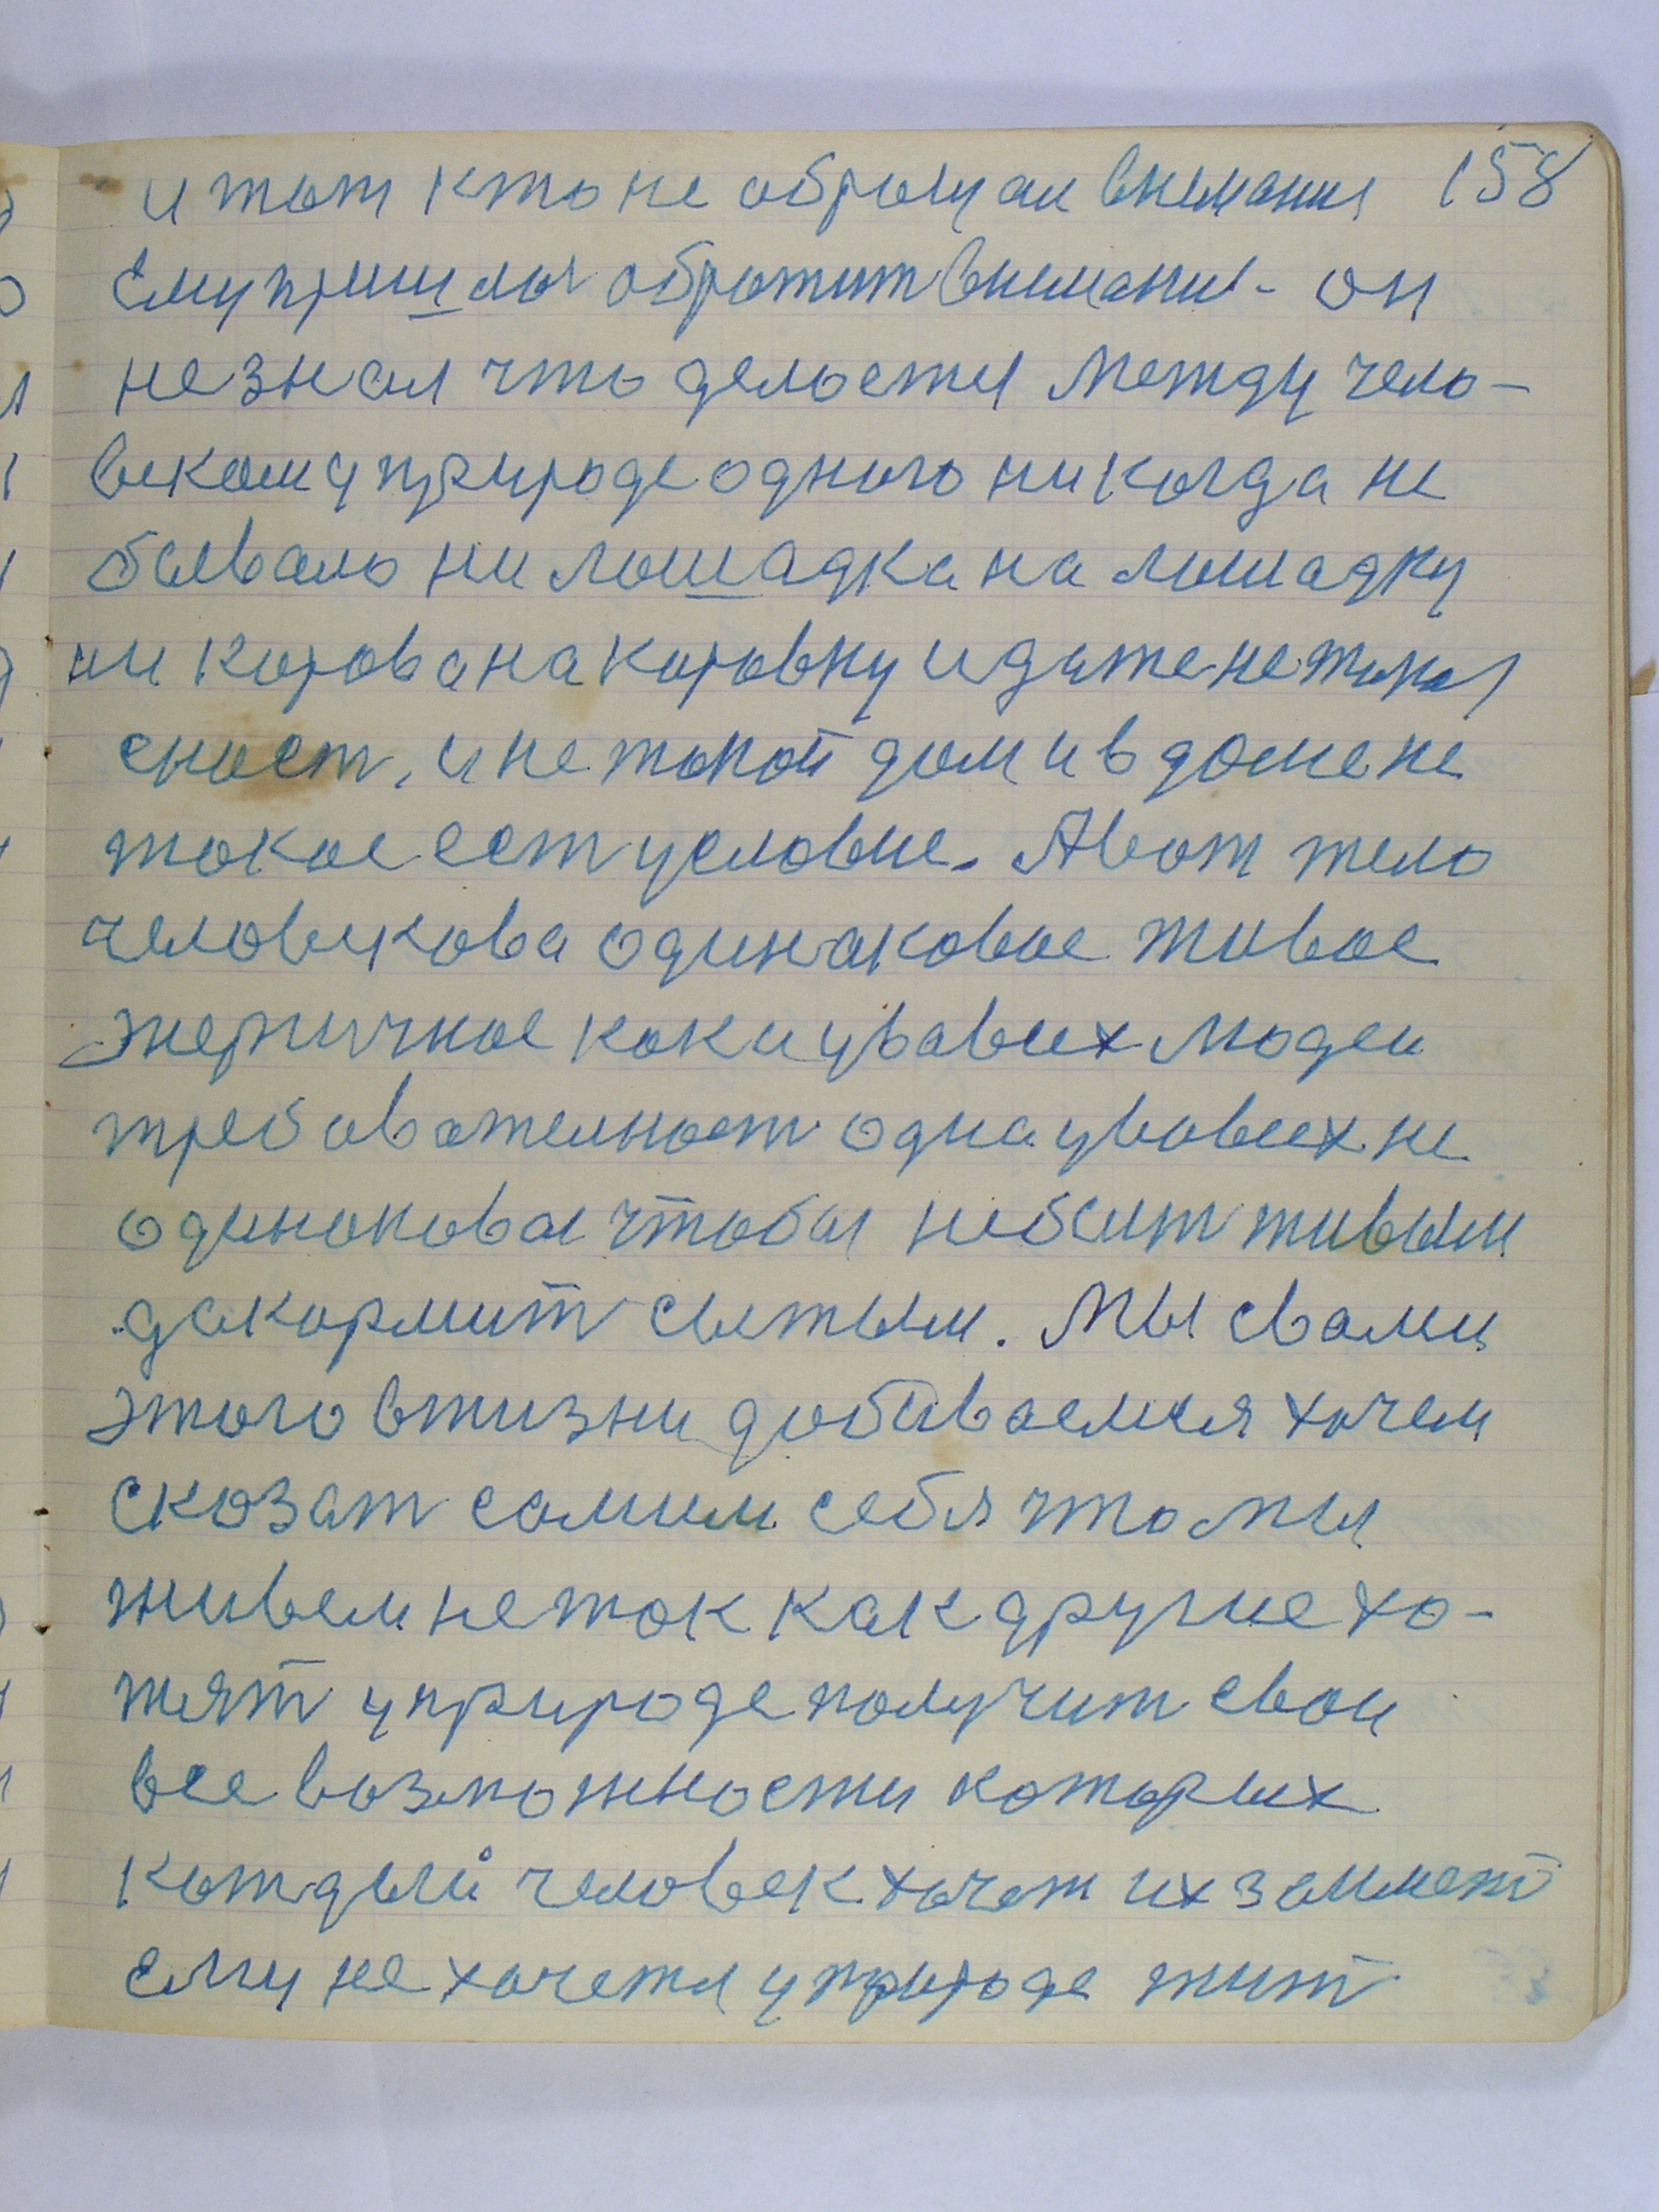 и тот кто не оброщал внимания 158
Ему пришлос обротит внимание - он
не знал что делоетсы Между чело-
веком у природе одного никогда не
бывало ни лошадка на лошадку
ни корова на коровку и даже не такая
сност, и не токой дом и в доме не
токое ест условие. А вот тело
человикова одинаковое живое
энергичное как и увавсех людеи
требавотелност одна увовсех не
одинокова чтобы небыт живым
да кормит сытым. Мы свами
этого вжизни добиваемся хочем
сказат самим себя что мы
живем не ток как другие хо-
тят у природе получит свои
все возможности которых
каждый человек хочет их займет
ему не хочетсы у природе жит